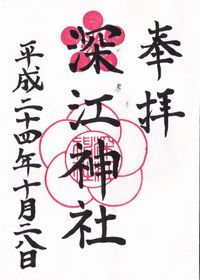 奉拝
深江神社
平成二十四年十月二八日